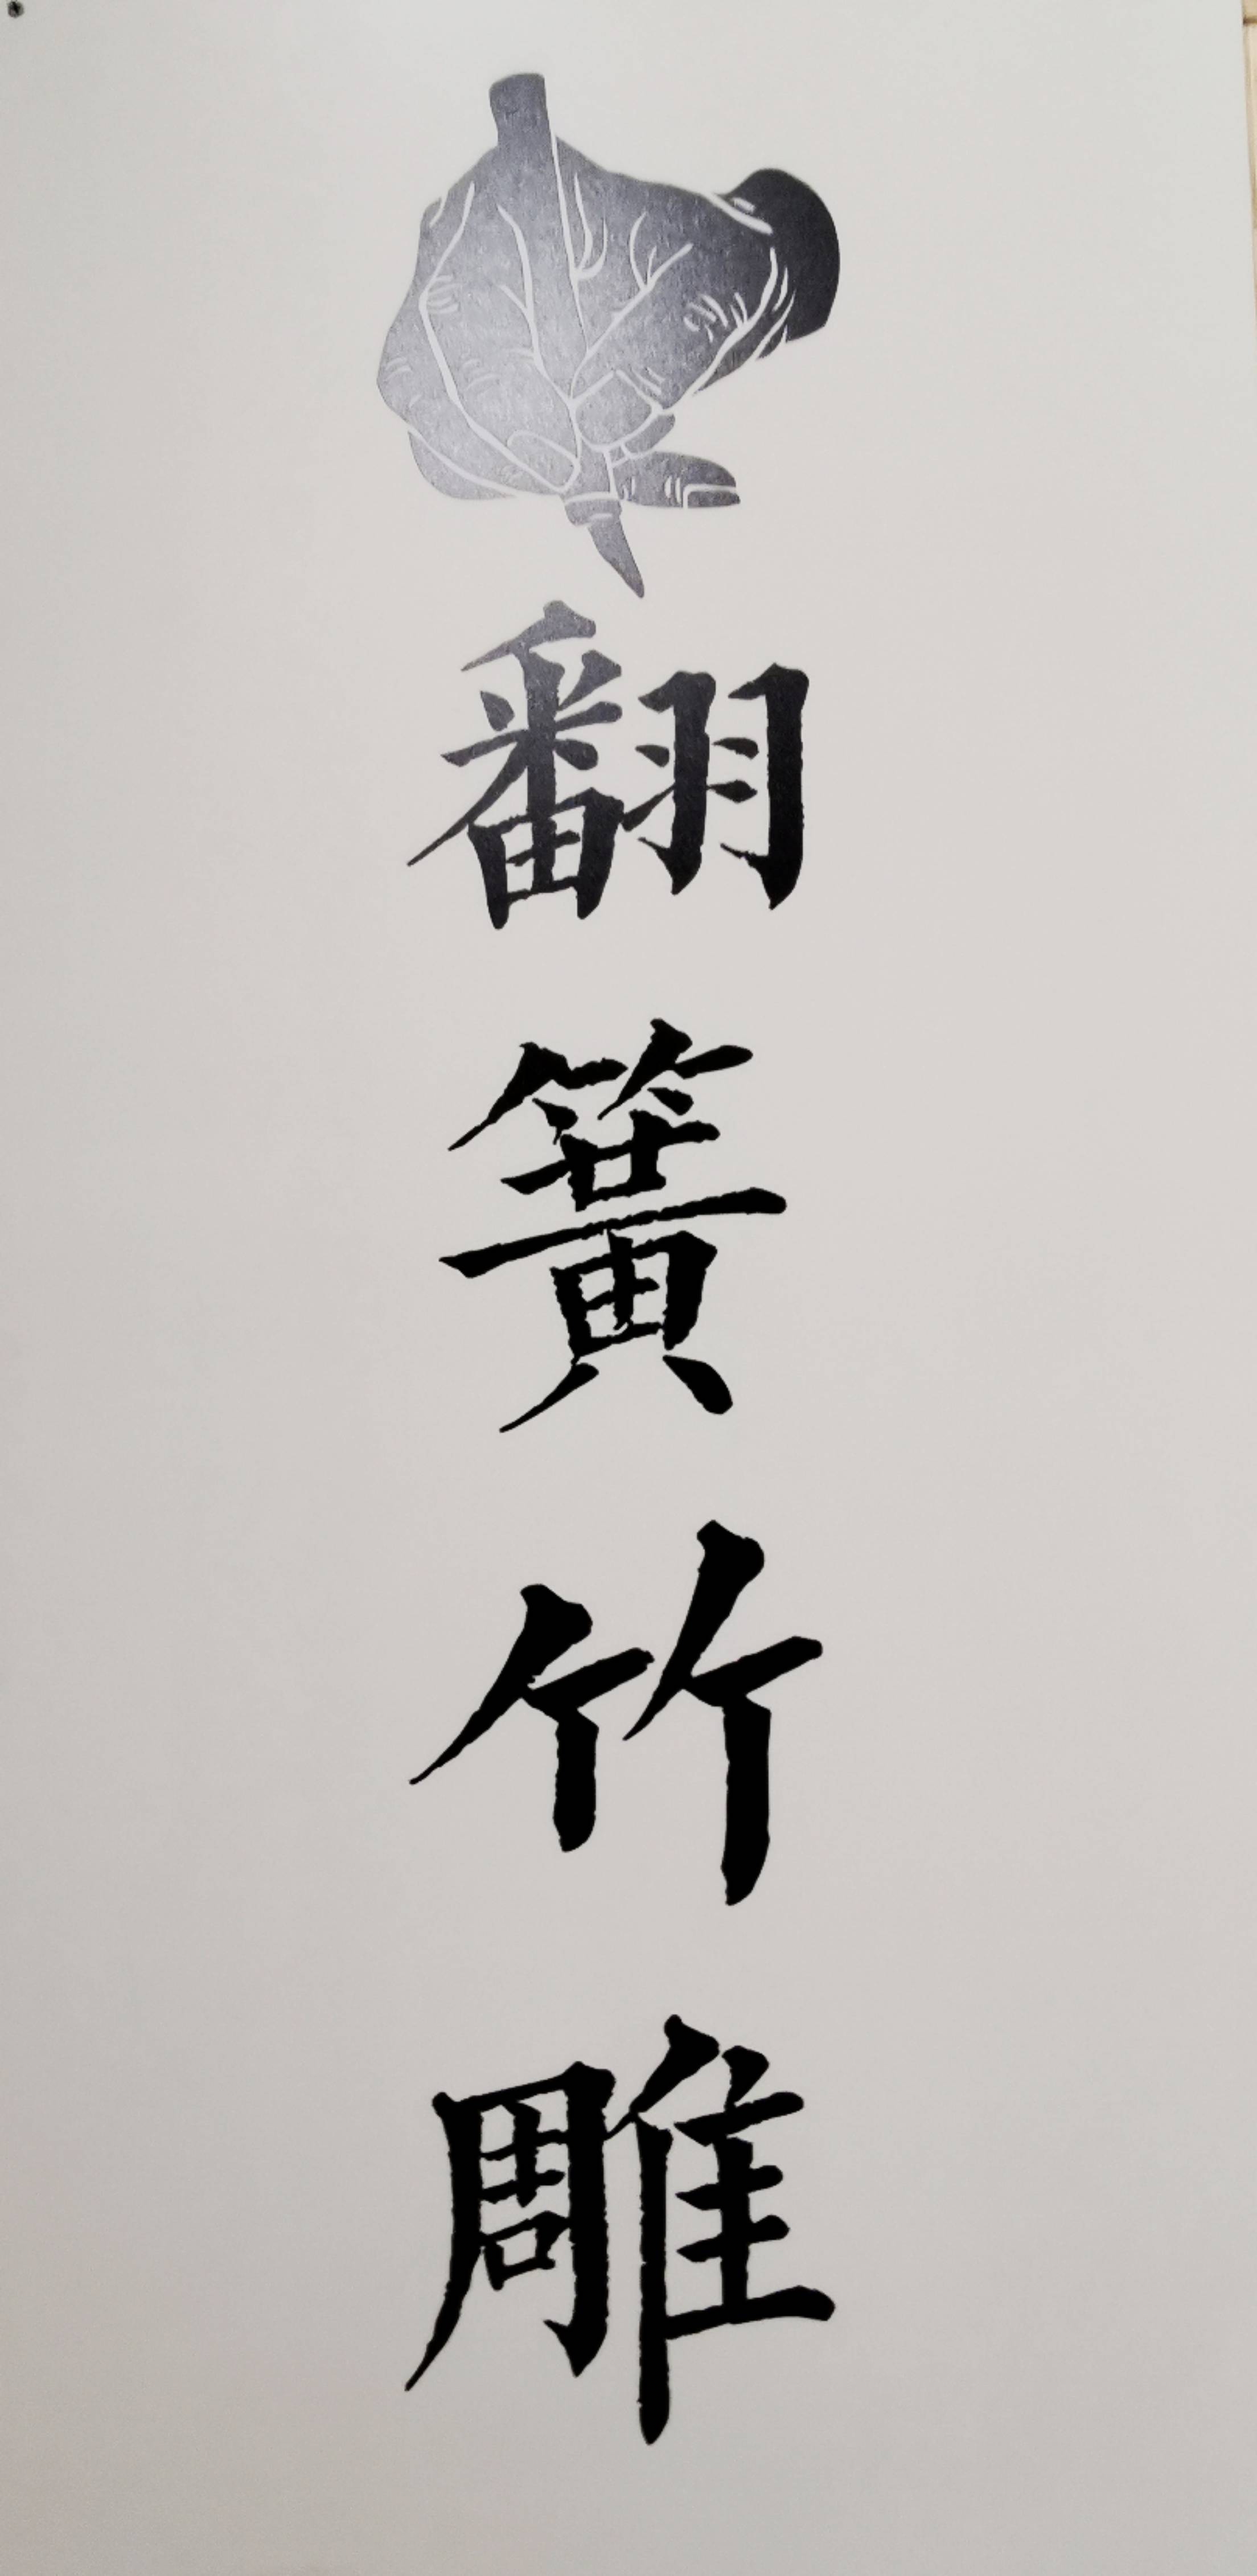 翻簧竹雕